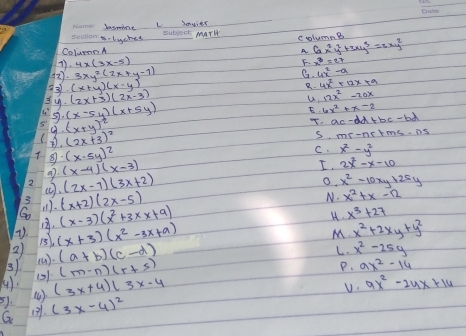 Name: Jasmine L Javier
Section: S-Lychee Subject: MATH
Date
Column A
Column B
1). 4x(3x-5)
2). 3xy²(2x+y-7)
3). (x+y)(x-y)
4). (2x+3)(2x-3)
5). (x-5y)(x+5y)
6). (x+y)²
7). (2x+3)²
8). (x-5y)²
9). (x-4)(x-3)
10). (2x-7)(3x+2)
11). (x+2)(2x-5)
12). (x-3)(x²+3x+9)
13). (x+3)(x²-3x+9)
14). (a+b)(c-d)
15). (m-n)(r+s)
16) (3x+4)(3x-4
17). (3x-4)²
F. x³-27
G. 4x²-9
R. 4x²+12x+9
U. 12x²-20x
T. ac-ad+bc-bd
S. mr-nr+ms-ns
C. x²-y²
I. 2x²-x-10
O. x²-10xy+25y
N. x²+x-12
H. x³+27
M. x²+2xy+y²
L. x²-25y
P. 9x²-16
V. 9x²-24x+16